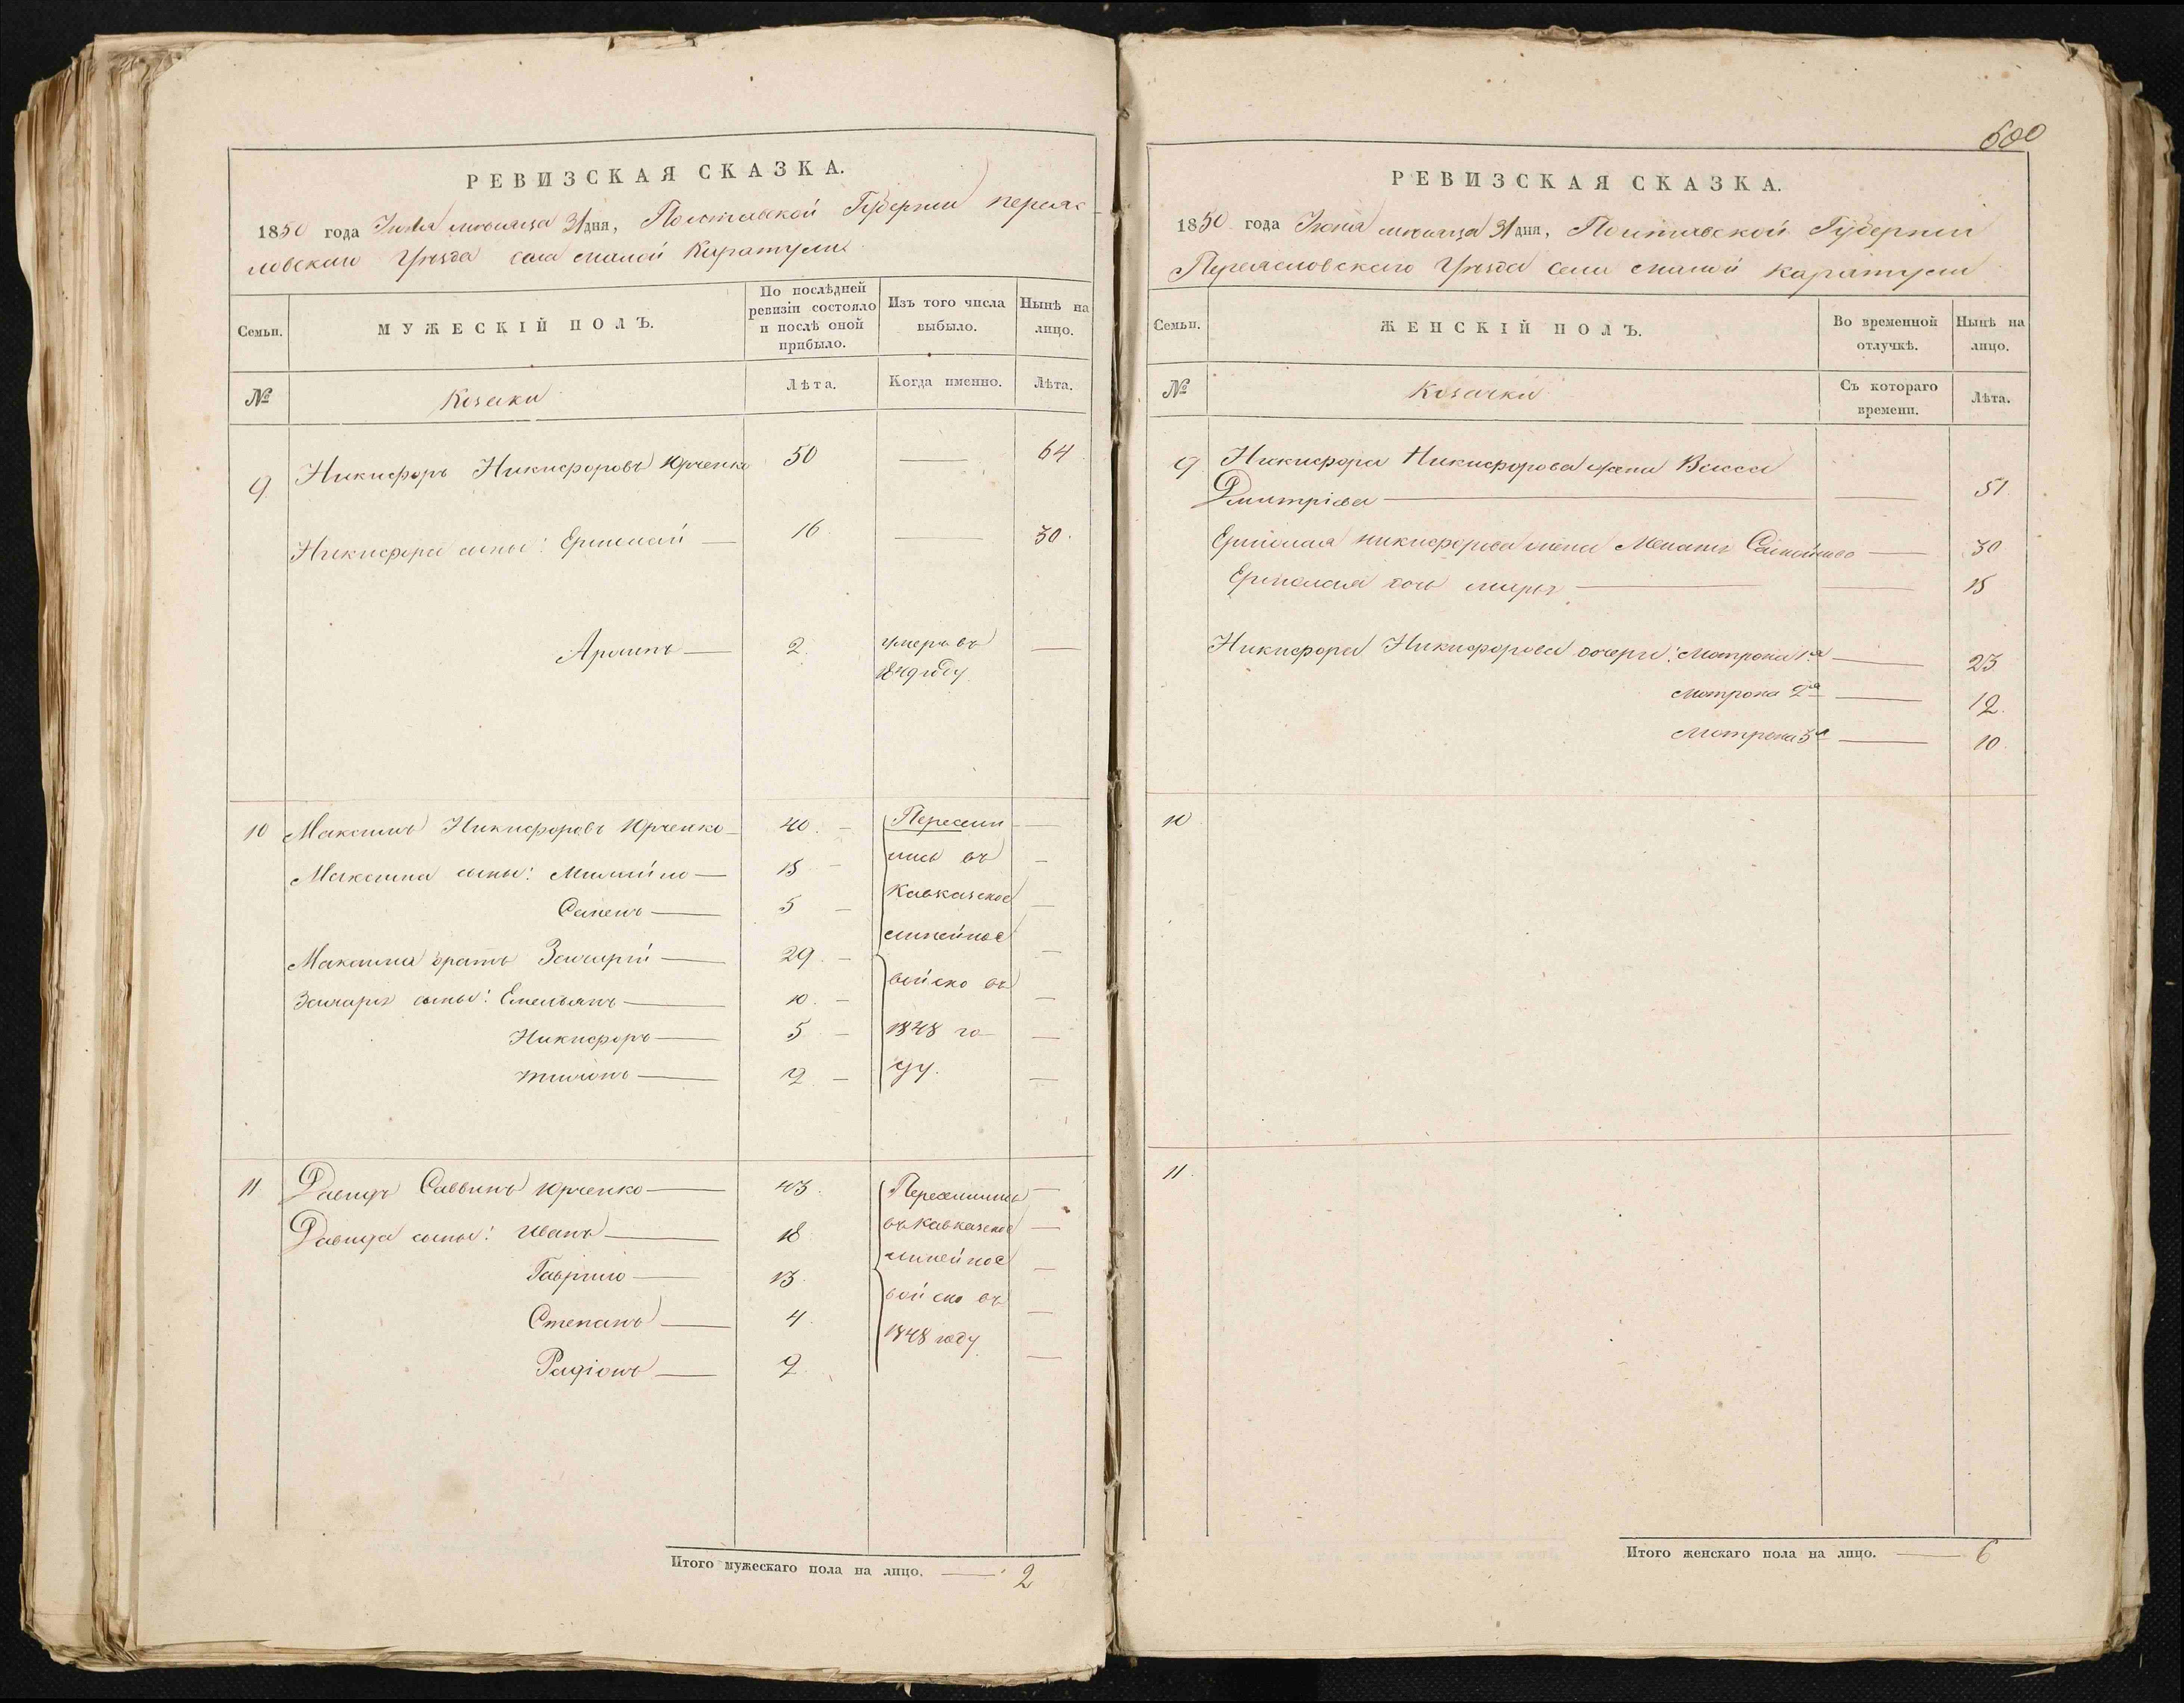 РЕВИЗСКАЯ СКАЗКА.
1850 года Июля месяца 31 дня, Полтавской Губернии Переяс-
ловского Уезда села малой Каратули
Семьи.
МУЖЕСКІЙ ПОЛЪ.
По послѣдней ревизіи состояло и послѣ оной прибыло.
Изъ того числа выбыло.
Нынѣ на лицо.
№
Козаки
Лѣта.
Когда именно.
Лѣта.
9 Никифоръ Никифоровъ Юрченко 50 — 64
Никифора сыны: Ермолай — 16 — 30.
— 2. умеръ въ —
1849 году.
10 Максимъ Никифоровъ Юрченко — 40. — Пересели- —
Максима сыны: Михайло — 15 — лись въ —
Семенъ — 5 — Кавказское —
линейное
Максима братъ Захарій — 29. — —
войско въ
Захарія сыны: Емельянъ — 10. — —
Никифоръ — 5 — 1848 го- —
Тихонъ — 2 — ду. —
11 Давидъ Саввинъ Юрченко — 43. Переселились —
Давида сыны: Иванъ — 18 въ Кавказское —
линейное
Гаврило — 13. —
войско въ
Степанъ — 4. —
1848 году
Радіонъ — 2. —
Итого мужескаго пола на лицо. — 2
600
РЕВИЗСКАЯ СКАЗКА.
1850 года месяца 31 дня, Полтавской Губернии
Переясловского Уезда села малой Каратули
Семьи.
ЖЕНСКІЙ ПОЛЪ.
Во временной отлучкѣ.
Нынѣ на лицо.
№
Козачки
Съ котораго времени.
Лѣта.
9 Никифора Никифорова жена Васса
Дмитріева — — 51.
Ермолая Никифорова жена — 30
Ермолая дочь — — 15
Никифора Никифорова дочери: Мотрона 1я — 23
Мотрона 2я — 12.
Мотрона 3я — 10.
10
11.
Итого женскаго пола на лицо. — 6